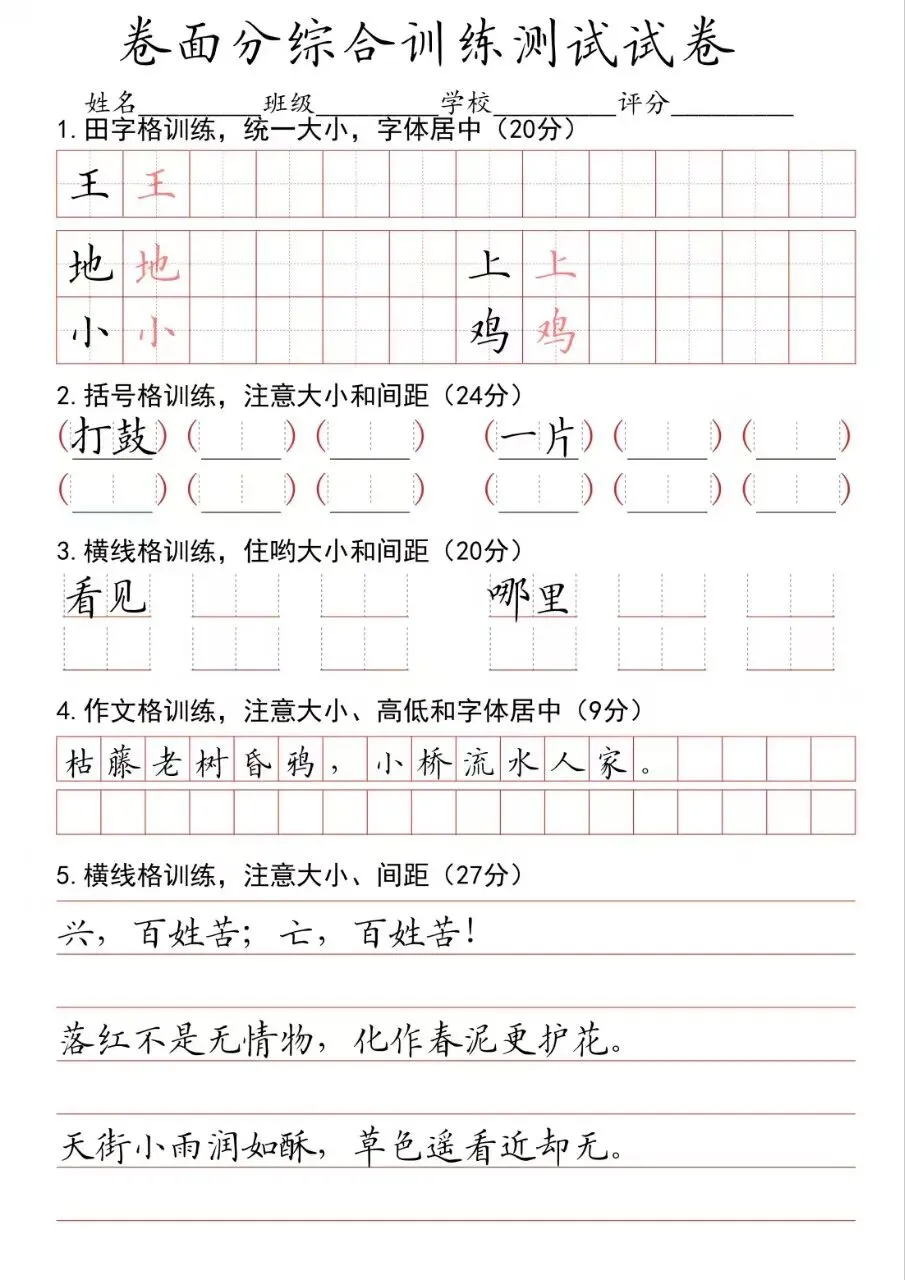 卷面分综合训练测试试卷
姓名________班级________学校________评分________
1.田字格训练，统一大小，字体居中（20分）
王 王
地 地 上 上
小 小 鸡 鸡
2.括号格训练，注意大小和间距（24分）
（打鼓）（ ）（ ）（一片）（ ）（ ）
（ ）（ ）（ ）（ ）（ ）（ ）
3.横线格训练，住哟大小和间距（20分）
看见 哪里
4.作文格训练，注意大小、高低和字体居中（9分）
枯藤老树昏鸦，小桥流水人家。
5.横线格训练，注意大小、间距（27分）
兴，百姓苦；亡，百姓苦！
落红不是无情物，化作春泥更护花。
天街小雨润如酥，草色遥看近却无。